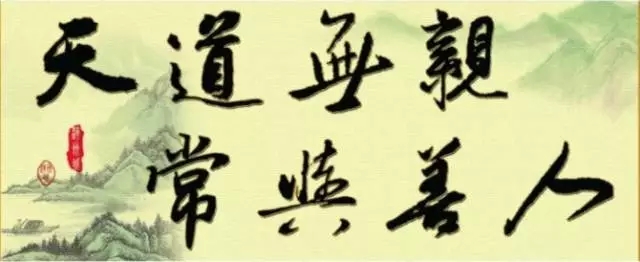 天道無親
常與善人